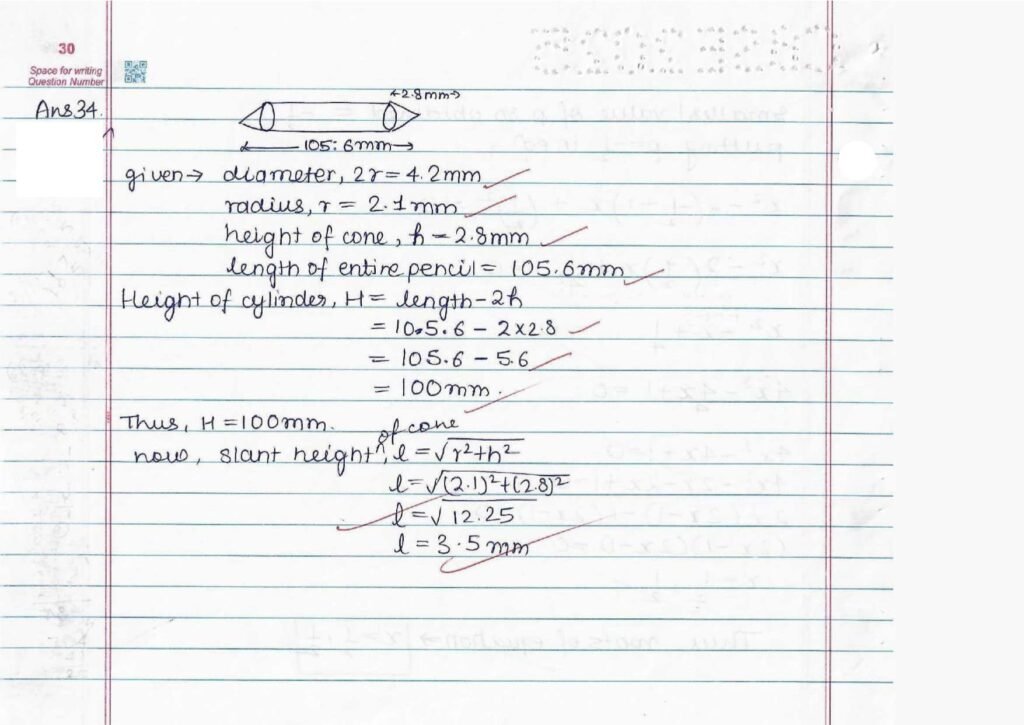 30
Space for writing
Question Number
Ans34.
2.8mm
105.6mm
given→ diameter, 2r = 4.2mm
radius, r = 2.1mm
height of cone, h = 2.8mm
length of entire pencil = 105.6mm
Height of cylinder, H = length - 2h
= 105.6 - 2×2.8
= 105.6 - 5.6
= 100mm.
Thus, H = 100mm.
now, slant height of cone, l = √r²+h²
l = √(2.1)²+(2.8)²
l = √12.25
l = 3.5mm